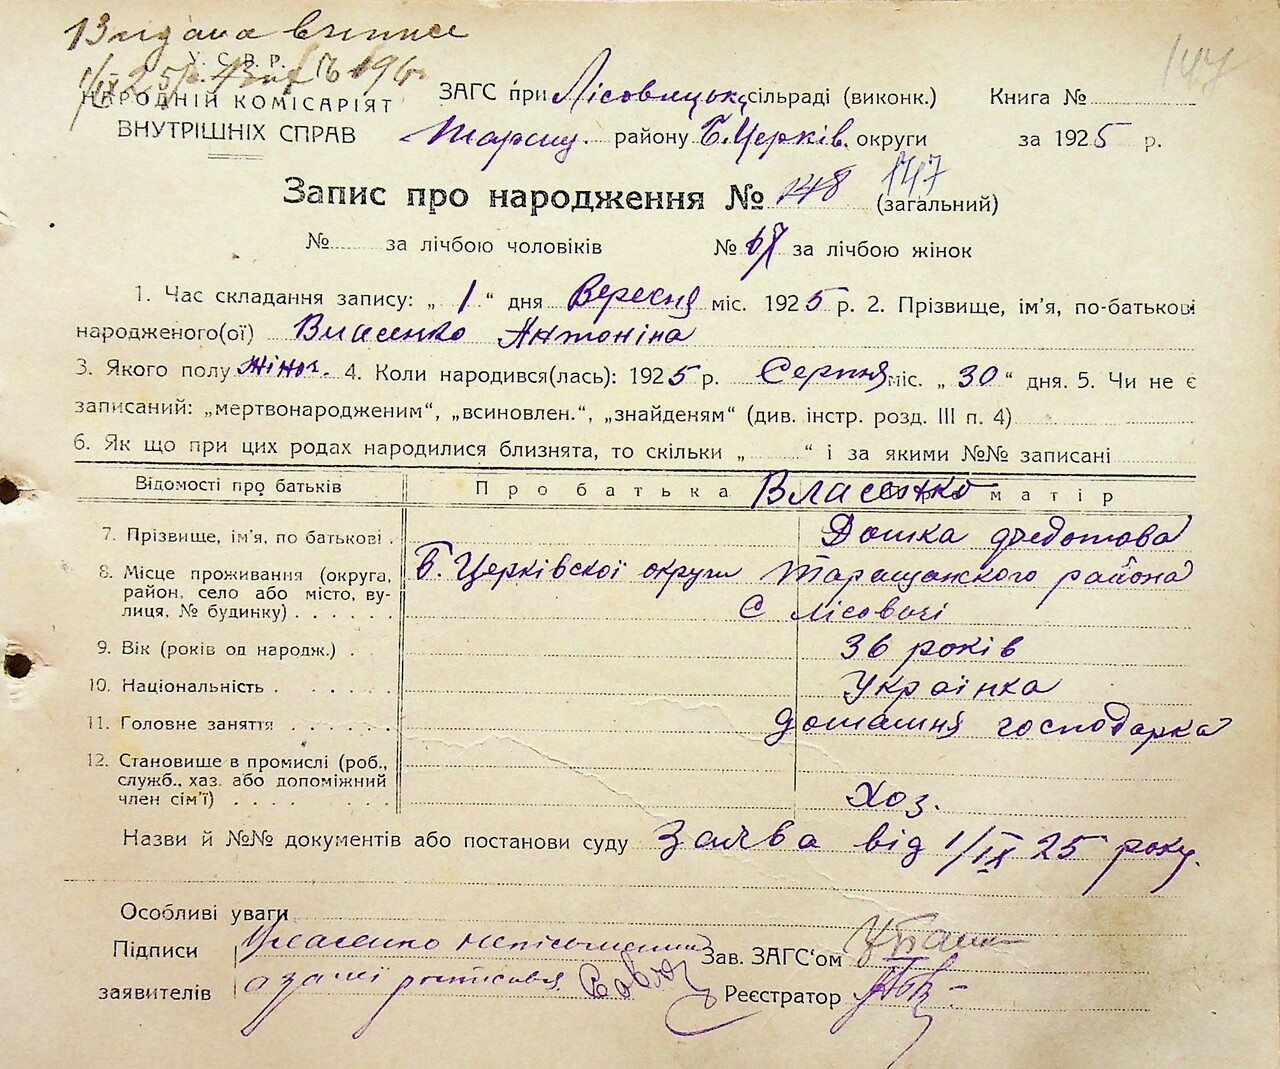 Видана виписка
1/IX 25 р.
147
У. С. Р. Р.
НАРОДНІЙ КОМІСАРІЯТ
ВНУТРІШНІХ СПРАВ
ЗАГС при Лісовицьк. сільраді (виконк.) Книга №
Таращ. району Б. Церків. округи за 1925 р.
Запис про народження № 148 147 (загальний)
№ за лічбою чоловіків № 67 за лічбою жінок
1. Час складання запису: „ 1 “ дня Вересня міс. 1925 р. 2. Прізвище, ім'я, по-батькові
народженого(ої) Власенко Антоніна
3. Якого полу жіноч. 4. Коли народився(лась): 1925 р. Серпня міс. „ 30 “ дня. 5. Чи не є
записаний: „мертвонародженим“, „всиновлен.“, „знайденям“ (див. інстр. розд. III п. 4)
6. Як що при цих родах народилися близнята, то скільки „ “ і за якими №№ записані
Відомості про батьків Про батька Власенко матір
7. Прізвище, ім'я, по батькові . Дошка Федотова
8. Місце проживання (округа, Б. Церківскої округи Таращанского района
район, село або місто, ву-
лиця, № будинку) . . . . . . с Лісовичі
9. Вік (років од народж.) . 36 років
10. Національність . . . . . . Українка
11. Головне заняття . . . . . . домашня господарка
12. Становище в промислі (роб.,
служб., хаз. або допоміжний
член сім'ї) . . . . . Хоз.
Назви й №№ документів або постанови суду Заява від 1/IX 25 року.
Особливі уваги
Підписи Власенко неписьменний Зав. ЗАГС'ом
заявителів а за неї росписовся Реєстратор